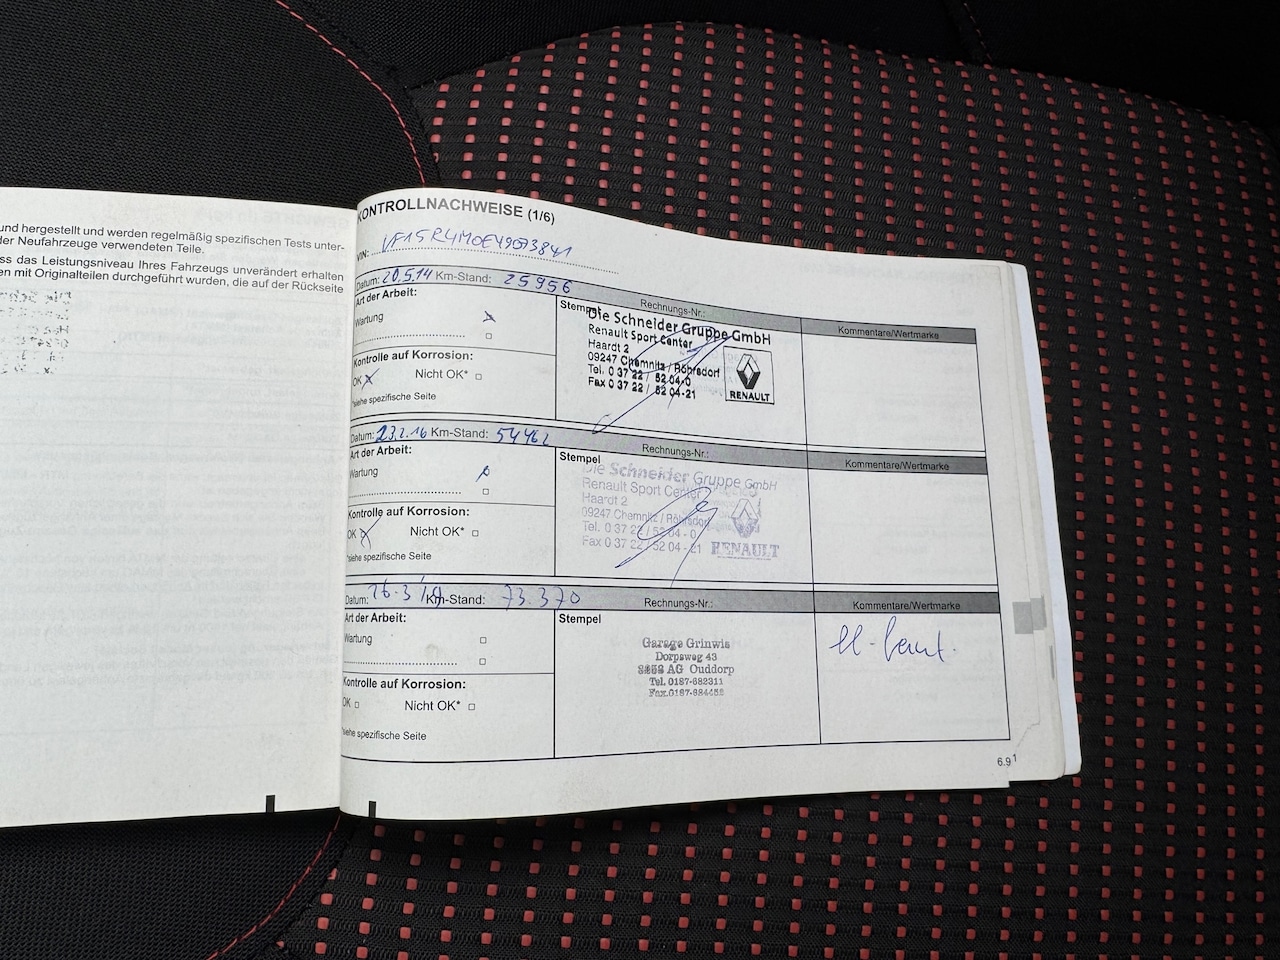 und hergestellt und werden regelmäßig spezifischen Tests unter-
der Neufahrzeuge verwendeten Teile.
ss das Leistungsniveau Ihres Fahrzeugs unverändert erhalten
en mit Originalteilen durchgeführt wurden, die auf der Rückseite
KONTROLLNACHWEISE (1/6)
VIN: VF15R4M0E49073841
Datum: 20.5.14 Km-Stand: 25956 Rechnungs-Nr.:
Art der Arbeit:
Wartung
Kontrolle auf Korrosion:
OK Nicht OK*
*siehe spezifische Seite
Stempel
Die Schneider Gruppe GmbH
Renault Sport Center
Haardt 2
09247 Chemnitz / Röhrsdorf
Tel. 0 37 22 / 52 04-0
Fax 0 37 22 / 52 04-21
RENAULT
Kommentare/Wertmarke
Datum: 23.2.16 Km-Stand: 54462 Rechnungs-Nr.:
Art der Arbeit:
Wartung
Kontrolle auf Korrosion:
OK Nicht OK*
*siehe spezifische Seite
Stempel
Die Schneider Gruppe GmbH
Renault Sport Center
Haardt 2
09247 Chemnitz / Röhrsdorf
Tel. 0 37 22 / 52 04 - 0
Fax 0 37 22 / 52 04 - 21
RENAULT
Kommentare/Wertmarke
Datum: Km-Stand: 73.370 Rechnungs-Nr.:
Art der Arbeit:
Wartung
Kontrolle auf Korrosion:
OK Nicht OK*
*siehe spezifische Seite
Stempel
Garage Grinwis
Dorpsweg 43
AG Ouddorp
Tel. 0187-682311
Kommentare/Wertmarke
6.9